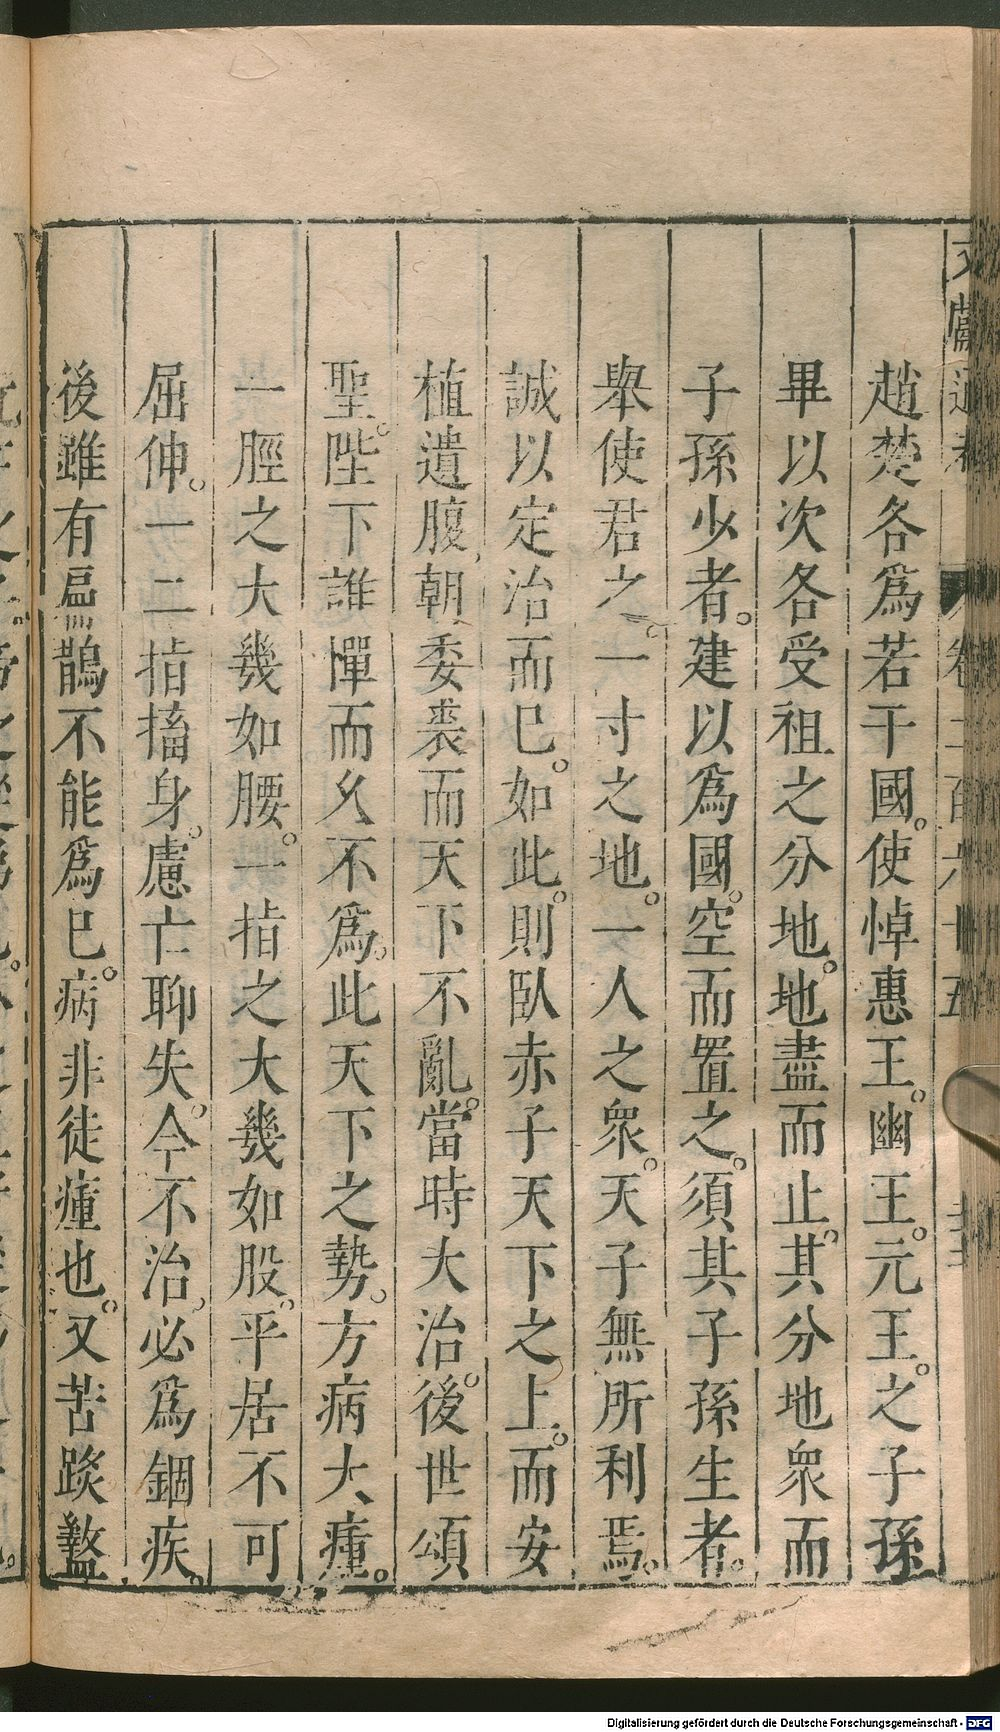 文獻通考 卷二百六十五
趙楚各爲若干國。使悼惠王。幽王。元王。之子孫
畢以次各受祖之分地。地盡而止。其分地衆而
子孫少者。建以爲國。空而置之。須其子孫生者。
舉使君之。一寸之地。一人之衆。天子無所利焉。
誠以定治而已。如此。則臥赤子天下之上。而安
植遺腹朝委裘而天下不亂。當時大治。後世頌
聖。陛下誰憚而久不爲。此天下之勢。方病大瘇。
一脛之大幾如腰。一指之大幾如股。平居不可
屈伸。一二指搐身。慮亡聊失。今不治。必爲錮疾。
後雖有扁鵲不能爲已。病非徒瘇也。又苦踱盭
Digitalisierung gefördert durch die Deutsche Forschungsgemeinschaft - DFG